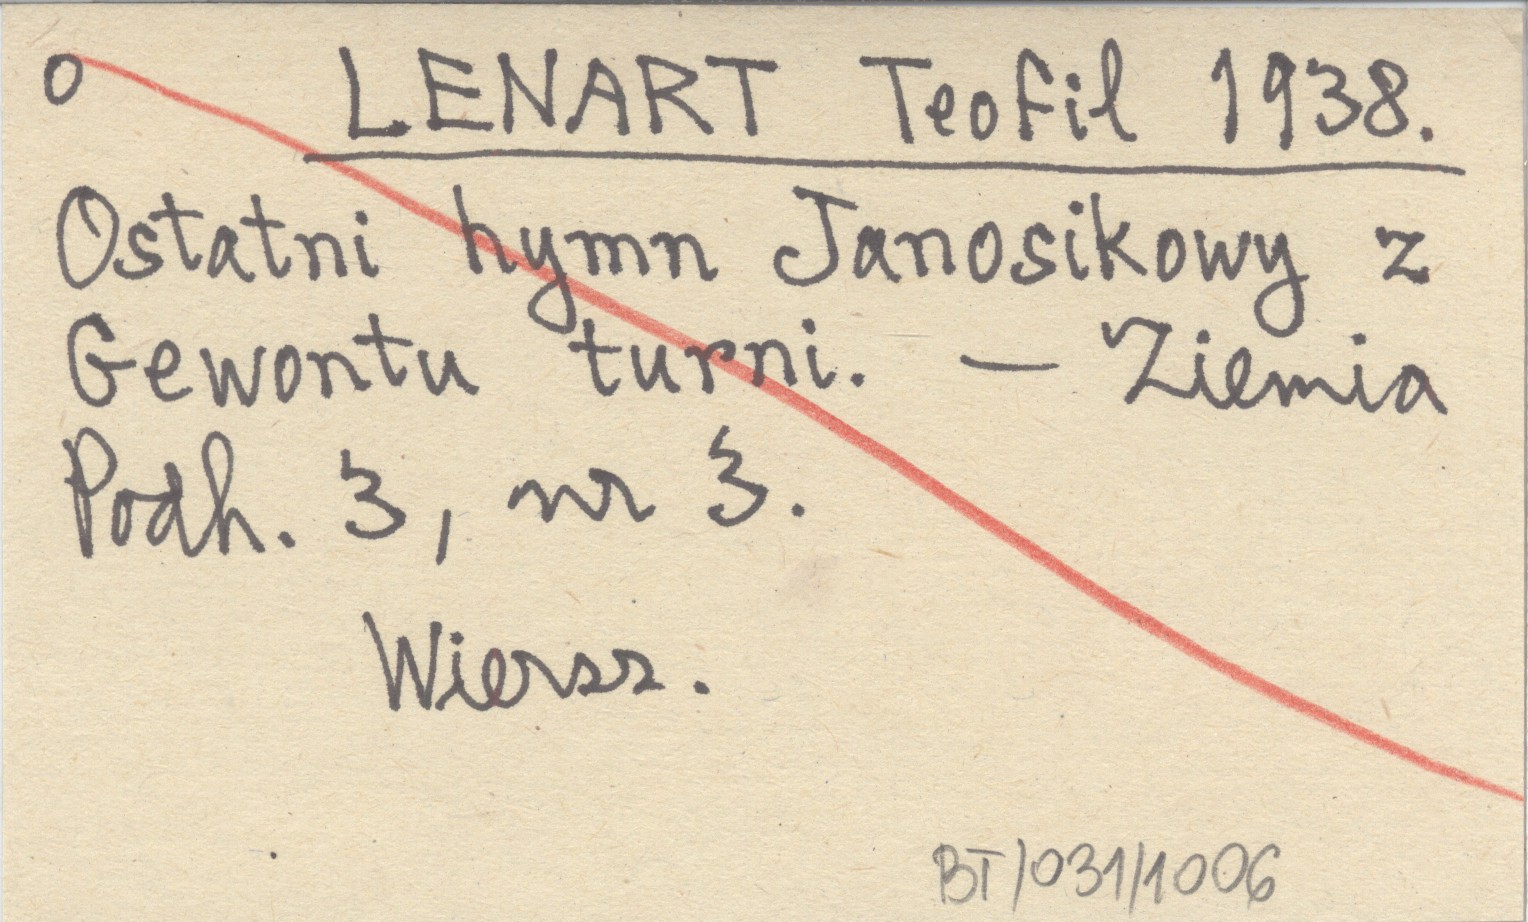 o LENART Teofil 1938.
Ostatni hymn Janosikowy z
Gewontu turni. — Ziemia
Podh. 3, nr 3.
Wiersz.
BT/031/1006